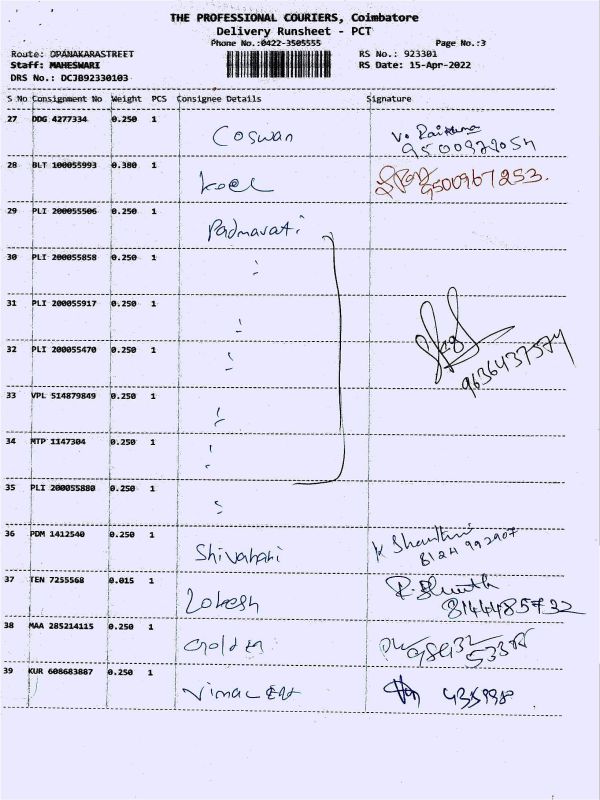 THE PROFESSIONAL COURIERS, Coimbatore
Delivery Runsheet - PCT
Phone No.:0422-3505555 Page No.:3
Route: OPANAKARASTREET RS No.: 923301
Staff: MAHESWARI RS Date: 15-Apr-2022
DRS No.: DCJB92330103
S No Consignment No Weight PCS Consignee Details Signature
27 DDG 4277334 0.250 1 Coswan
28 BLT 100055993 0.380 1 koel 9500967253.
29 PLI 200055506 0.250 1 Padmavati
30 PLI 200055858 0.250 1
31 PLI 200055917 0.250 1
32 PLI 200055470 0.250 1 9636437374
33 VPL 514879849 0.250 1
34 MTP 1147304 0.250 1
35 PLI 200055880 0.250 1
36 PDM 1412540 0.250 1 Shivahari K Shanthi 8124 992907
37 TEN 7255568 0.015 1 Lokesh 8144485732
38 MAA 285214115 0.250 1 Golden
39 KUR 608683887 0.250 1